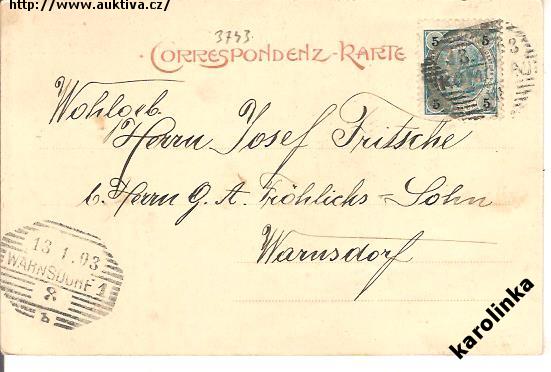 http://www.auktiva.cz/
3743.
CORRESPONDENZ-KARTE
5 5
5 5
Wohlgeb.
Herrn Josef Fritsche
b. Herrn G. A. Fröhlichs-Sohn
Warnsdorf
13.1.03
WARNSDORF 1
8.
b
karolinka